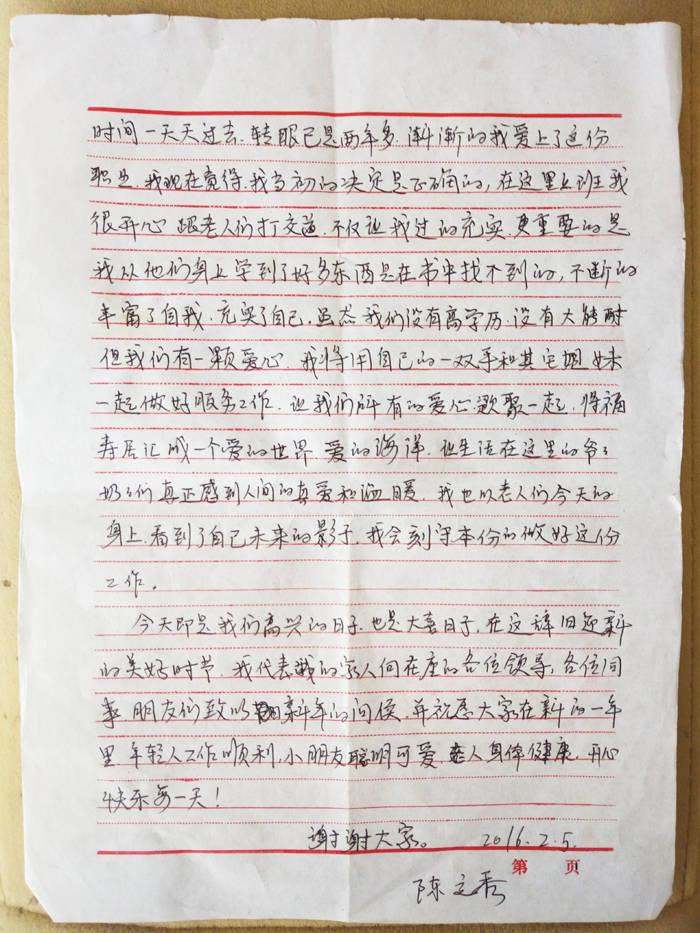 时间一天天过去.转眼已是两年多.渐渐的我爱上了这份
职业.我现在觉得.我当初的决定是正确的,在这里上班我
很开心 跟老人们打交道.不仅让我过的充实.更重要的是
我从他们身上学到了好多东西是在书中找不到的,不断的
丰富了自我.充实了自己.虽然我们没有高学历.没有大能耐
但我们有一颗爱心.我将用自己的一双手和其它姐妹
一起做好服务工作.让我们所有的爱心.歌聚一起.将福
寿居汇成一个爱的世界 爱的海洋.让生活在这里的爷々
奶々们真正感到人间的真爱和温暖.我也从老人们今天的
身上.看到了自己未来的影子.我会刻守本份的做好这份
工作.
今天即是我们高兴的日子.也是大喜日子.在这辞旧迎新
的美好时节.我代表我的家人向在座的各位领导,各位同
事 朋友们致以新年的问侯.并祝愿大家在新的一年
里.年轻人工作顺利,小朋友聪明可爱.老人身体健康.开心
快乐每一天!
谢谢大家。 2016.2.5.
第 页
陈文秀